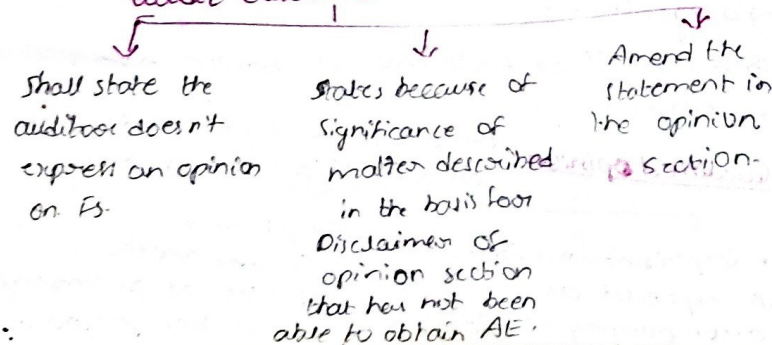 Shall state the
auditor doesn't
express an opinion
on Fs.
States because of
significance of
matter described
in the basis for
Disclaimer of
opinion section
that has not been
able to obtain AE.
Amend the
statement in
the opinion
section.